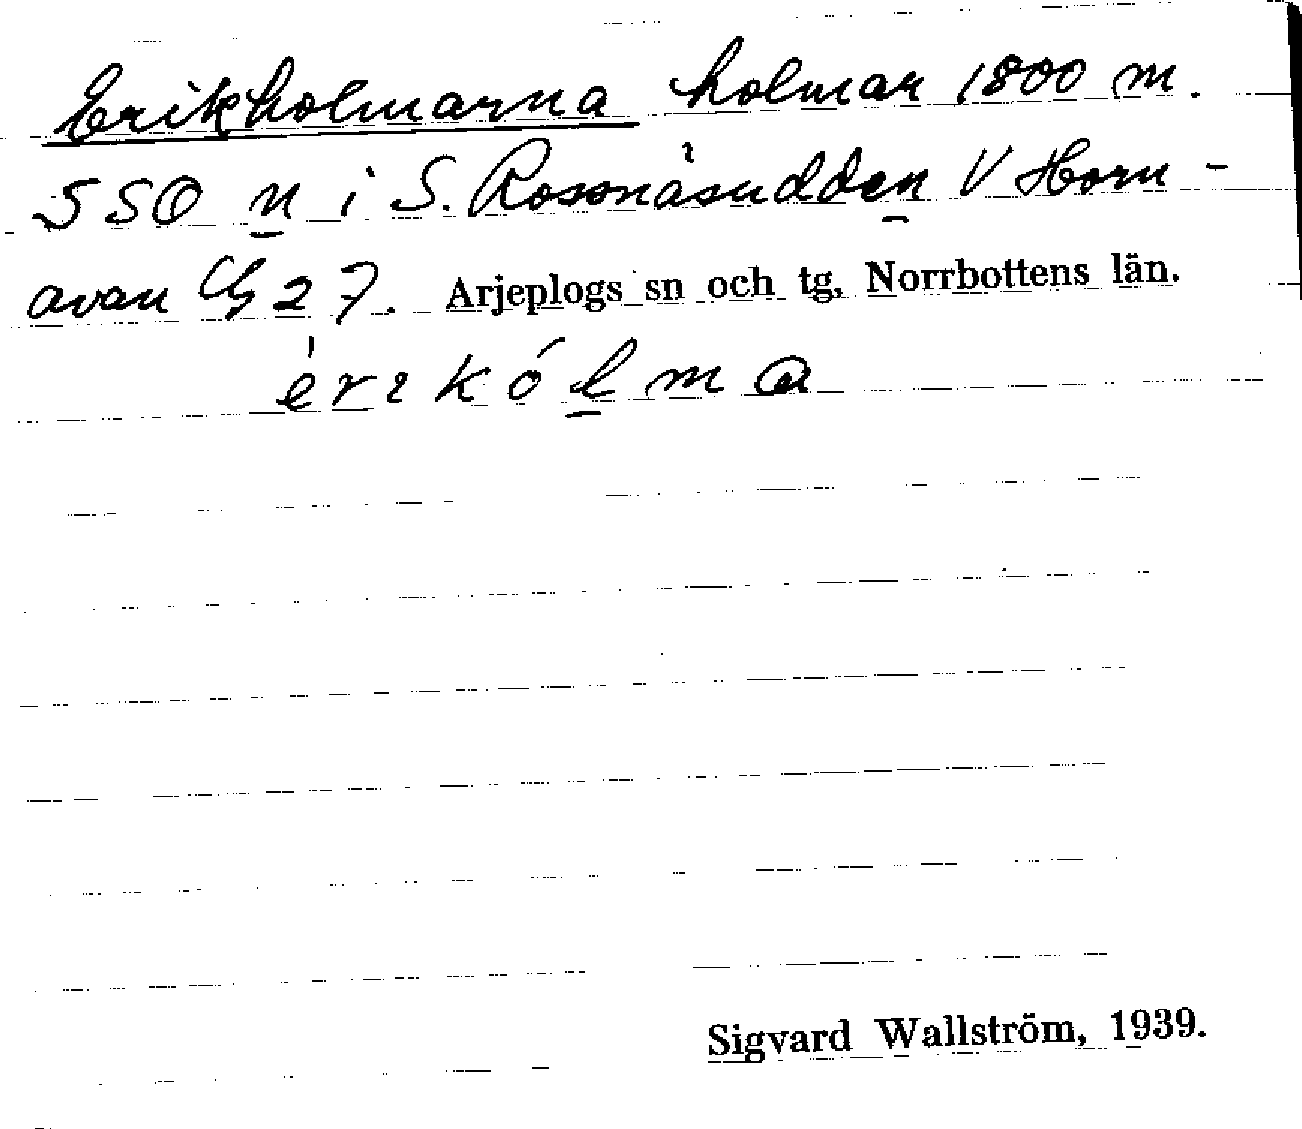 Erikholmarna holmar 1800 m.
SSO n i S. Rossnäsudden V Horn-
avan 27. Arjeplogs sn och tg, Norrbottens län.
érɩkólma
Sigvard Wallström, 1939.